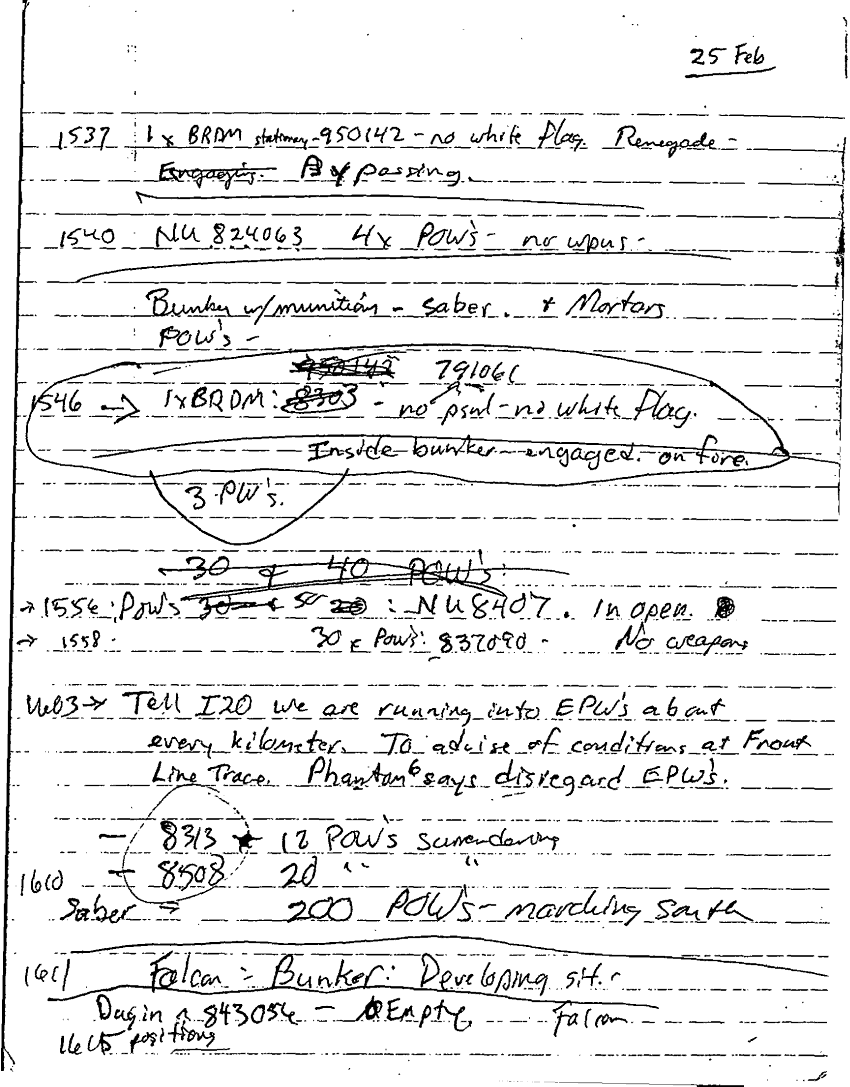 25 Feb
1537 1 x BRDM stationary - 950142 - no white flag. Renegade -
Engaging. By passing.
1540 NU 824063 4x POW's - no wpns -
Bunker w/munition - saber. + Mortars
POW's -
950142 791061
1546 → 1xBRDM: 8303 - no psnl - no white flag.
Inside bunker - engaged. on fire.
3 PW's.
30 + 40 POW's:
→ 1556: POW's 30 : NU 8407. In open.
→ 1558 - 30 x POW's: 837090 - No weapons
1603 → Tell I20 we are running into EPW's about
every kilometer. To advise of conditions at Front
Line Trace. Phantom 6 says disregard EPW's.
- 8313 12 POW's surrendering
1610 - 8508 20 " "
Saber = 200 POW's - marching South
1611 Falcon - Bunker: Developing sit.
Dug in 843056 - Empty. Falcon
1615 positions